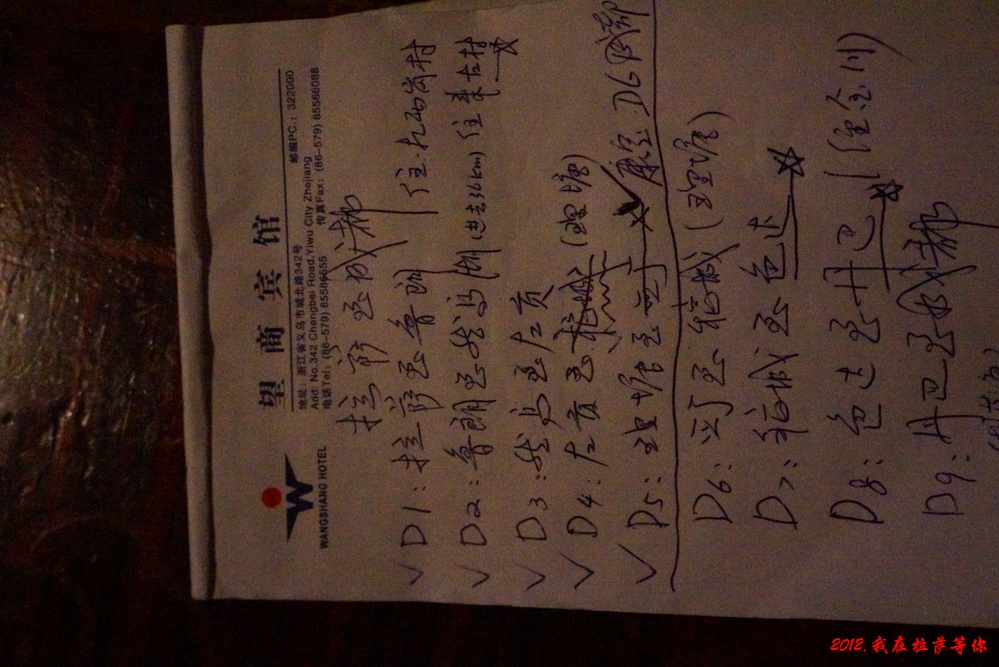 望商宾馆
WANGSHANG HOTEL
地址：浙江省义乌市城北路342号 邮编PC.：322000
Add: No.342 Chengbei Road,Yiwu City Zhejiang
电话Tel：(86-579) 85586655 传真Fax：(86-579) 85566088
拉萨至成都
D1：拉萨至鲁朗 住：扎西岗村
D2：鲁朗至然乌 (进去36km) 住来古村
D3：然乌至左贡
D4：左贡至稻城 (理塘)
D5：理塘至 康定.D6成都
D6： 至稻城 (理塘)
D7：稻城至色达
D8：色达至丹巴 (金川)
D9：丹巴至成都
2012.我在拉萨等你